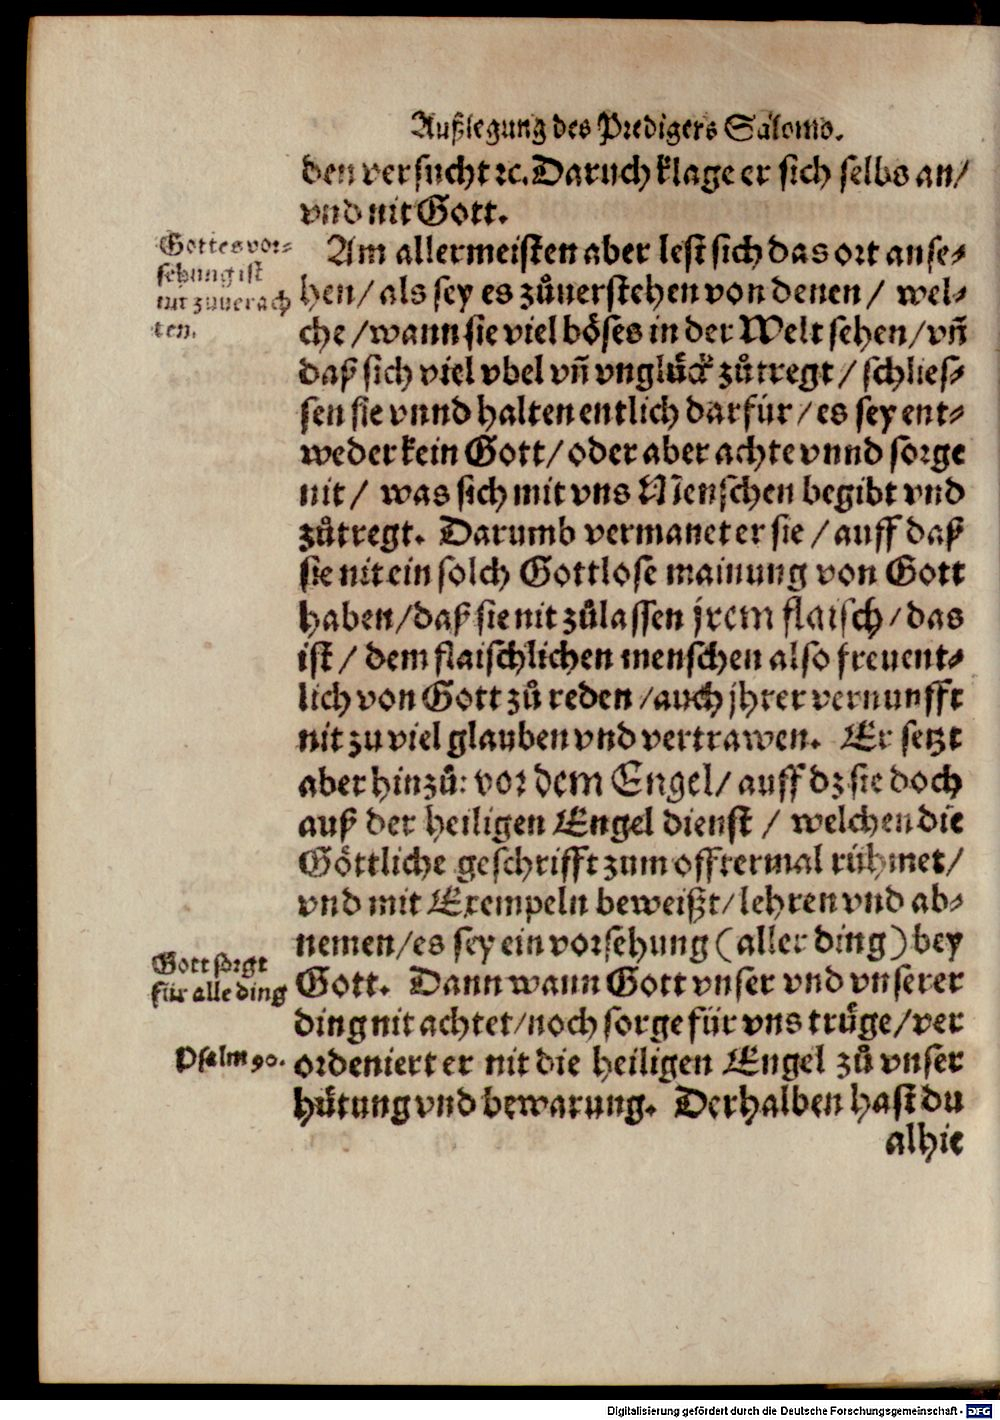 Außlegung des Predigers Salomo.
den versucht ꝛc. Daruch klage er sich selbs an/
vnd nit Gott.
Gottes vor⸗
sehung ist
nit zuuerach
ten.
Am allermeisten aber lest sich das ort anse⸗
hen/ als sey es zůuerstehen von denen / wel⸗
che / wann sie viel böses in der Welt sehen / vñ
daß sich viel vbel vñ vnglück zůtregt / schlies⸗
sen sie vnnd halten entlich darfür / es sey ent⸗
weder kein Gott / oder aber achte vnnd sorge
nit / was sich mit vns Menschen begibt vnd
zůtregt. Darumb vermanet er sie / auff daß
sie nit ein solch Gottlose mainung von Gott
haben / daß sie nit zůlassen jrem flaisch / das
ist / dem flaischlichen menschen also freuent⸗
lich von Gott zů reden / auch jhrer vernunfft
nit zu viel glauben vnd vertrawen. Er setzt
aber hinzů: vor dem Engel / auff dz sie doch
auß der heiligen Engel dienst / welchen die
Göttliche geschrifft zum offtermal rühmet /
vnd mit Exempeln beweißt / lehren vnd ab⸗
nemen / es sey ein vorsehung (aller ding) bey
Gott sorgt
für alle ding
Gott. Dann wann Gott vnser vnd vnserer
ding nit achtet / noch sorge für vns trüge / ver
Psalm 90.
ordeniert er nit die heiligen Engel zů vnser
hütung vnd bewarung. Derhalben hast du
alhie
Digitalisierung gefördert durch die Deutsche Forschungsgemeinschaft - DFG